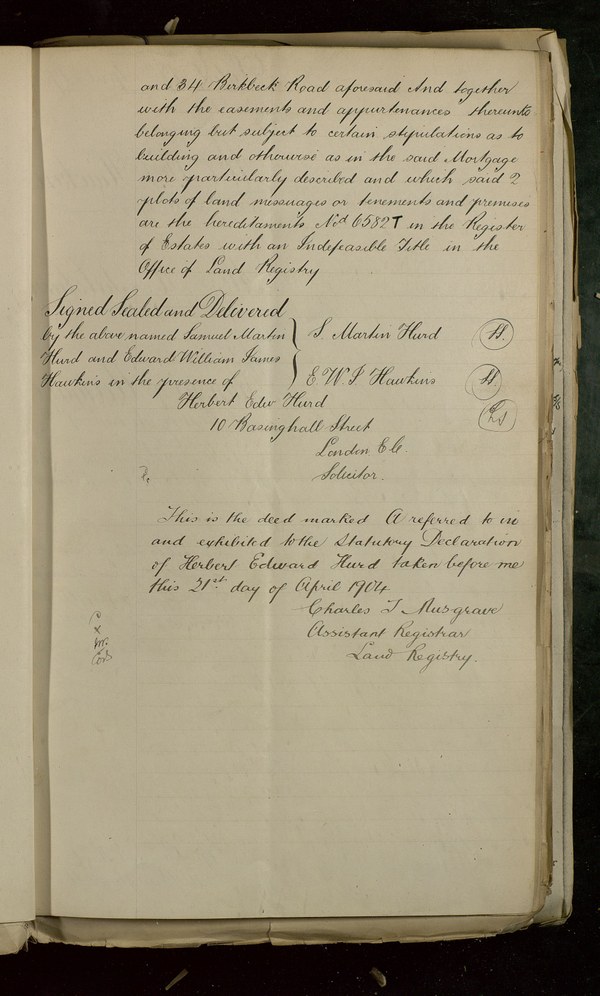 and 34 Birkbeck Road aforesaid And together
with the easements and appurtenances thereunto
belonging but subject to certain stipulations as to
building and otherwise as in the said Mortgage
more particularly described and which said 2
plots of land messuages or tenements and premises
are the hereditaments Nod 6582T in the Register
of Estates with an Indefeasible Title in the
Office of Land Registry
Signed Sealed and Delivered
by the above named Samuel Martin } S. Martin Hurd
Hurd and Edward William James
Hawkins in the presence of } E. W. J Hawkins
Herbert Edwd Hurd
10 Basinghall Street
London E C.
Solicitor.
This is the deed marked A referred to in
and exhibited to the Statutory Declaration
of Herbert Edward Hurd taken before me
this 21st day of April 1904
Charles T Musgrave
Assistant Registrar
Land Registry.